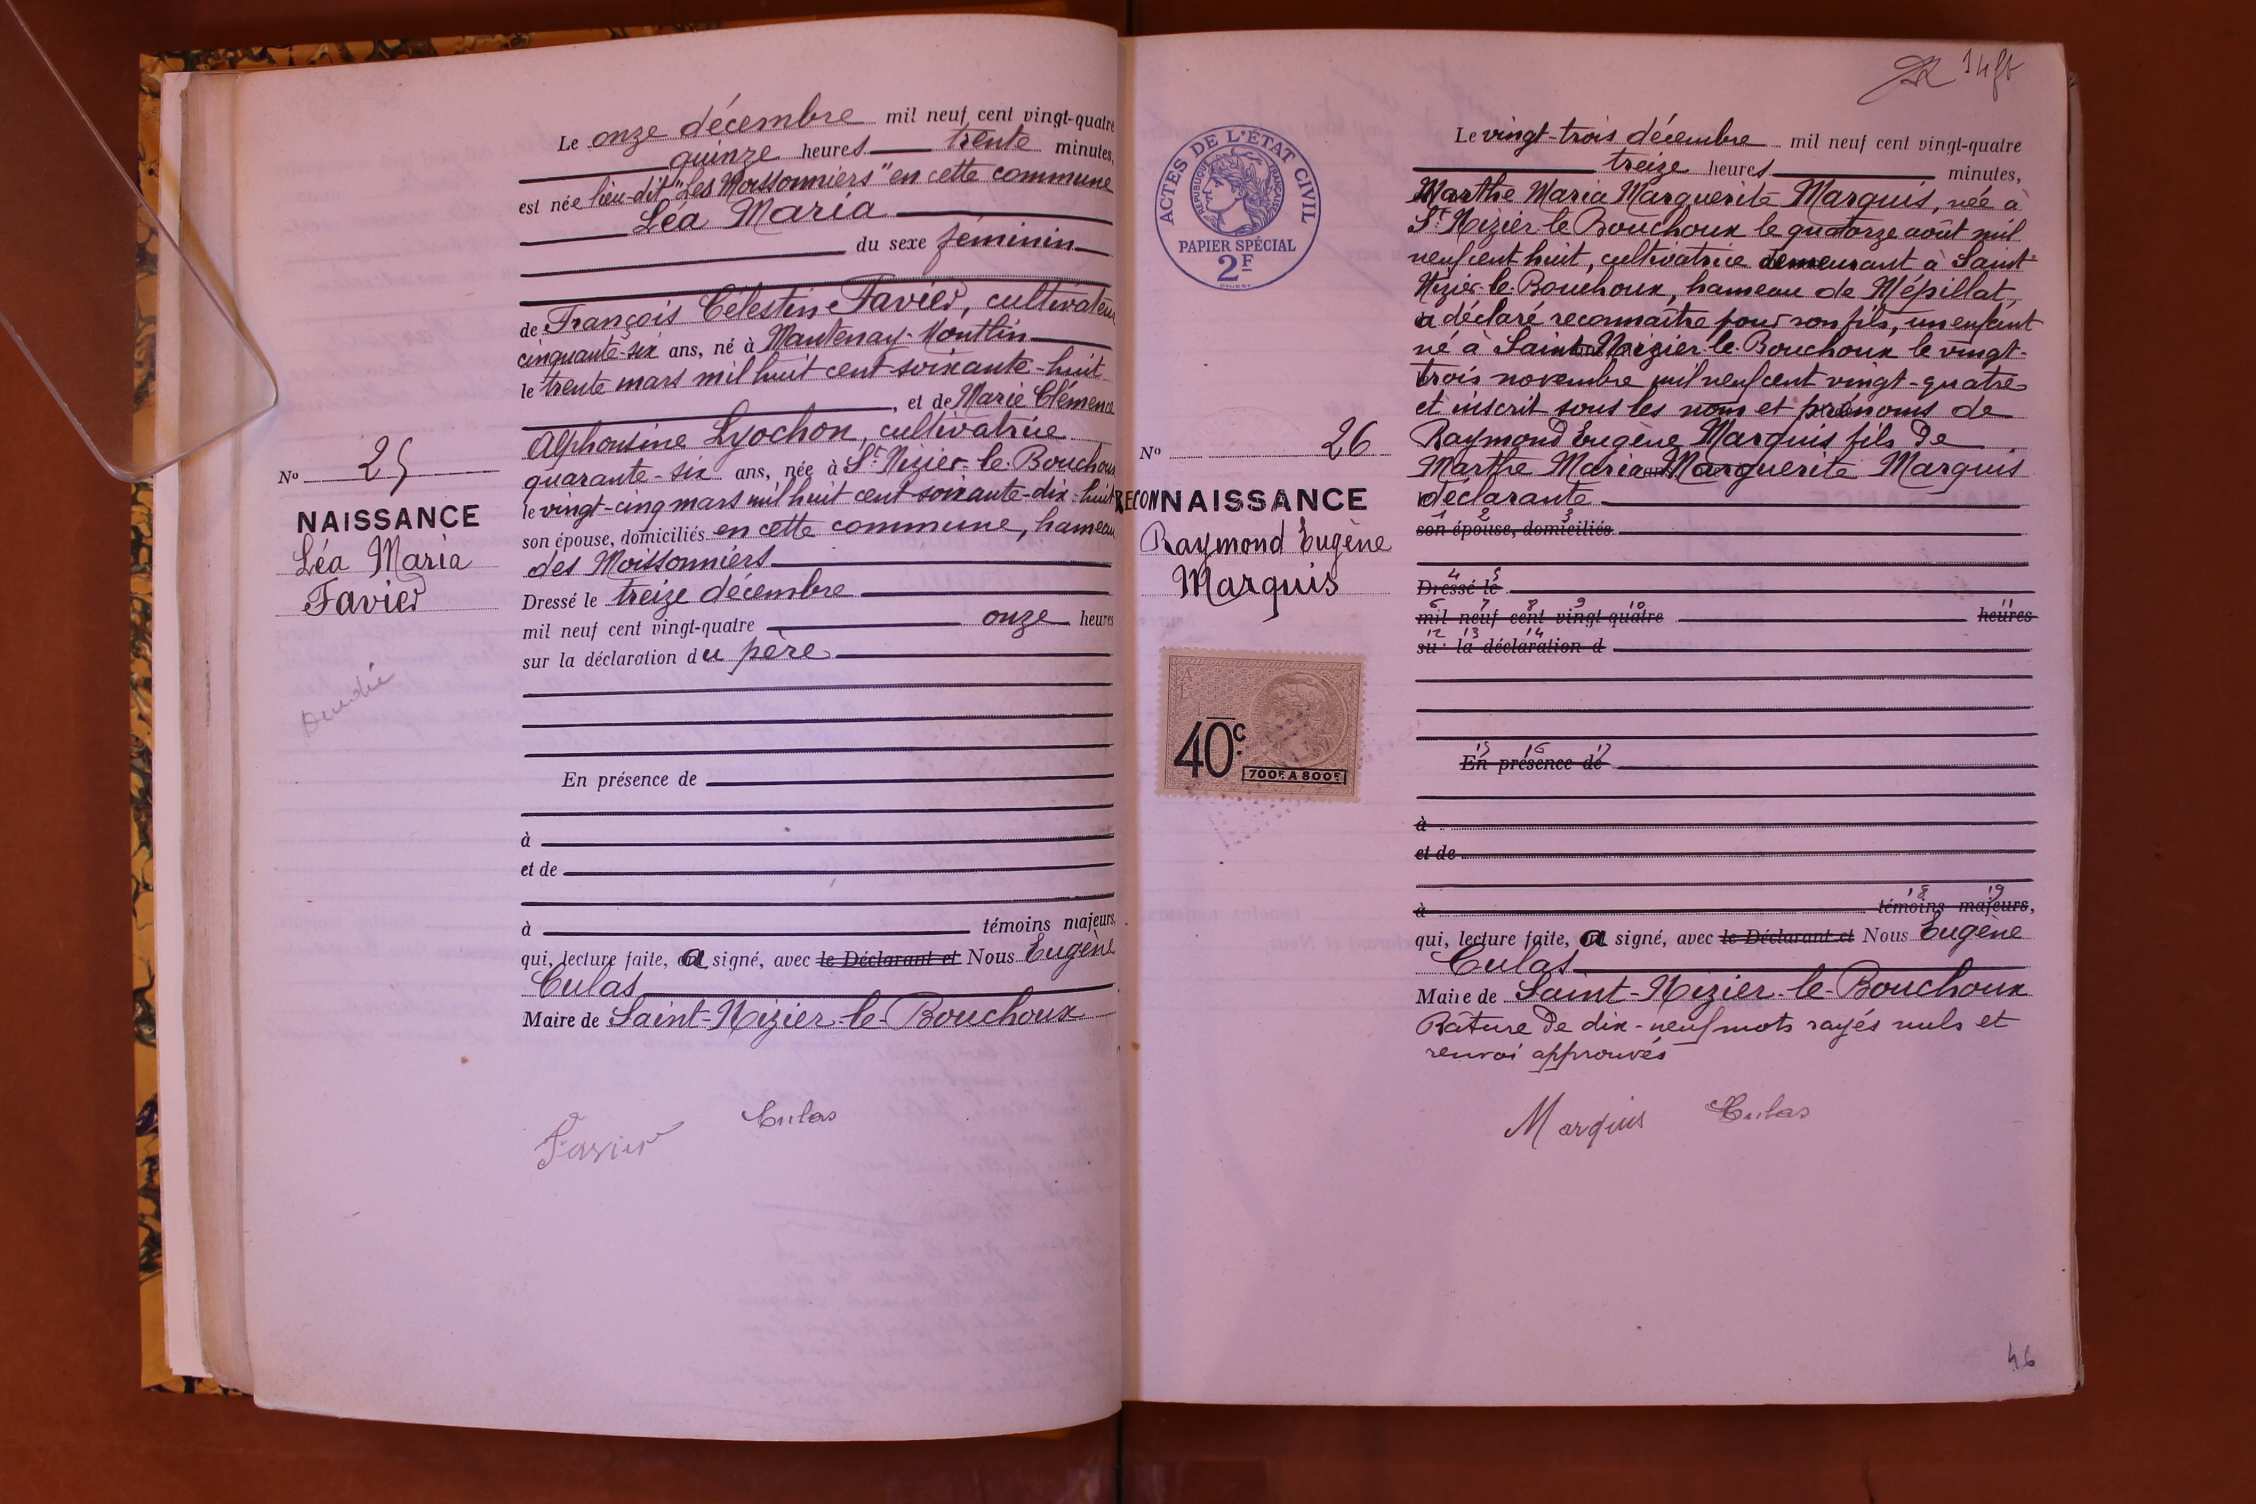 Le onze décembre mil neuf cent vingt-quatre
quinze heures trente minutes,
est née lieu-dit "Les Moissonniers" en cette commune
Léa Maria
du sexe féminin
de François Célestin Favier, cultivateur
cinquante-six ans, né à Mantenay-Montlin
le trente mars mil huit cent soixante-huit
, et de Marie Clémence
Alphonsine Lyochon, cultivatrice
quarante-six ans, née à St Nizier-le-Bouchoux
le vingt-cinq mars mil huit cent soixante-dix-huit
son épouse, domiciliés en cette commune, hameau
des Moissonniers
Dressé le treize décembre
mil neuf cent vingt-quatre onze heures
sur la déclaration du père
En présence de
à
et de
à témoins majeurs,
qui, lecture faite, a signé, avec le Déclarant et Nous Eugène
Culas
Maire de Saint-Nizier-le-Bouchoux
Favier Culas
No 25
NAISSANCE
Léa Maria
Favier
14
ACTES DE L'ÉTAT CIVIL
RÉPUBLIQUE FRANÇAISE
PAPIER SPÉCIAL
2F
No 26
RECONNAISSANCE
Raymond Eugène
Marquis
40c.
700F. A 800F.
Le vingt-trois décembre mil neuf cent vingt-quatre
treize heures minutes,
Marthe Maria Marguerite Marquis, née à
St Nizier-le-Bouchoux le quatorze août mil
neuf cent huit, cultivatrice demeurant à Saint
Nizier-le-Bouchoux, hameau de Mépillat,
a déclaré reconnaître pour son fils, un enfant
né à Saint-Nizier-le-Bouchoux le vingt-
trois novembre mil neuf cent vingt-quatre
et inscrit sous les nom et prénoms de
Raymond Eugène Marquis fils de
Marthe Maria Marguerite Marquis
déclarante
1 2 3
son épouse, domiciliés
4 5
Dressé le
6 7 8 9 10 11
mil neuf cent vingt-quatre heures
12 13 14
sur la déclaration d
15 16 17
En présence de
à
et de
18 19
à témoins majeurs,
qui, lecture faite, a signé, avec le Déclarant et Nous Eugène
Culas
Maire de Saint-Nizier-le-Bouchoux
Rature de dix-neuf mots rayés nuls et
renvoi approuvés
Marquis Culas
46